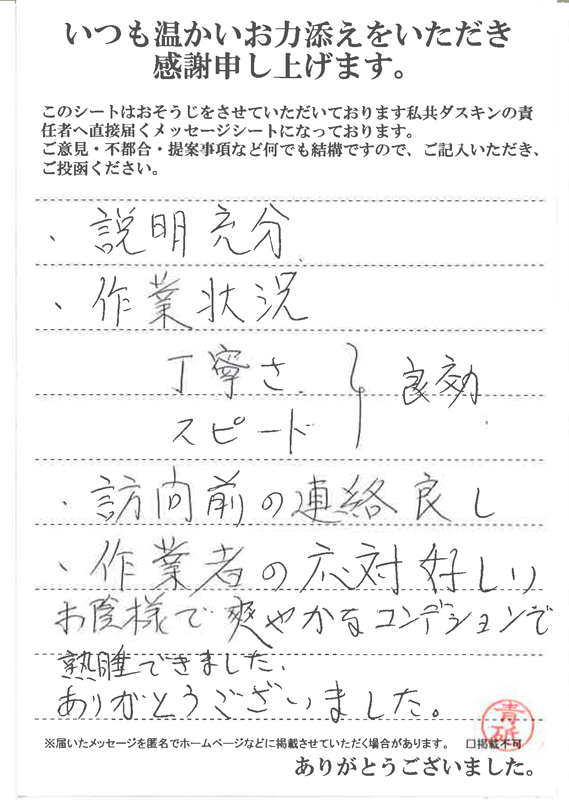 いつも温かいお力添えをいただき
感謝申し上げます。
このシートはおそうじをさせていただいております私共ダスキンの責
任者へ直接届くメッセージシートになっております。
ご意見・不都合・提案事項など何でも結構ですので、ご記入いただき、
ご投函ください。
、説明充分
、作業状況
丁寧さ 良効
スピード
、訪問前の連絡良し
、作業者の応対好しい
お陰様で爽やかなコンデションで
熟睡できました、
ありがとうございました。
青砥
※届いたメッセージを匿名でホームページなどに掲載させていただく場合があります。 □掲載不可
ありがとうございました。